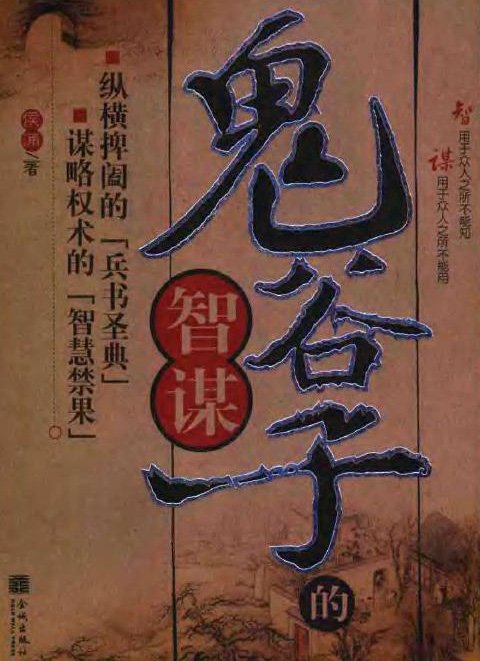 智 用于众人之所不能知
谋 用于众人之所不能用
鬼谷子的
智谋
纵横捭阖的「兵书圣典」
谋略权术的「智慧禁果」
侯清/著
金城出版社
GOLD WALL PRESS